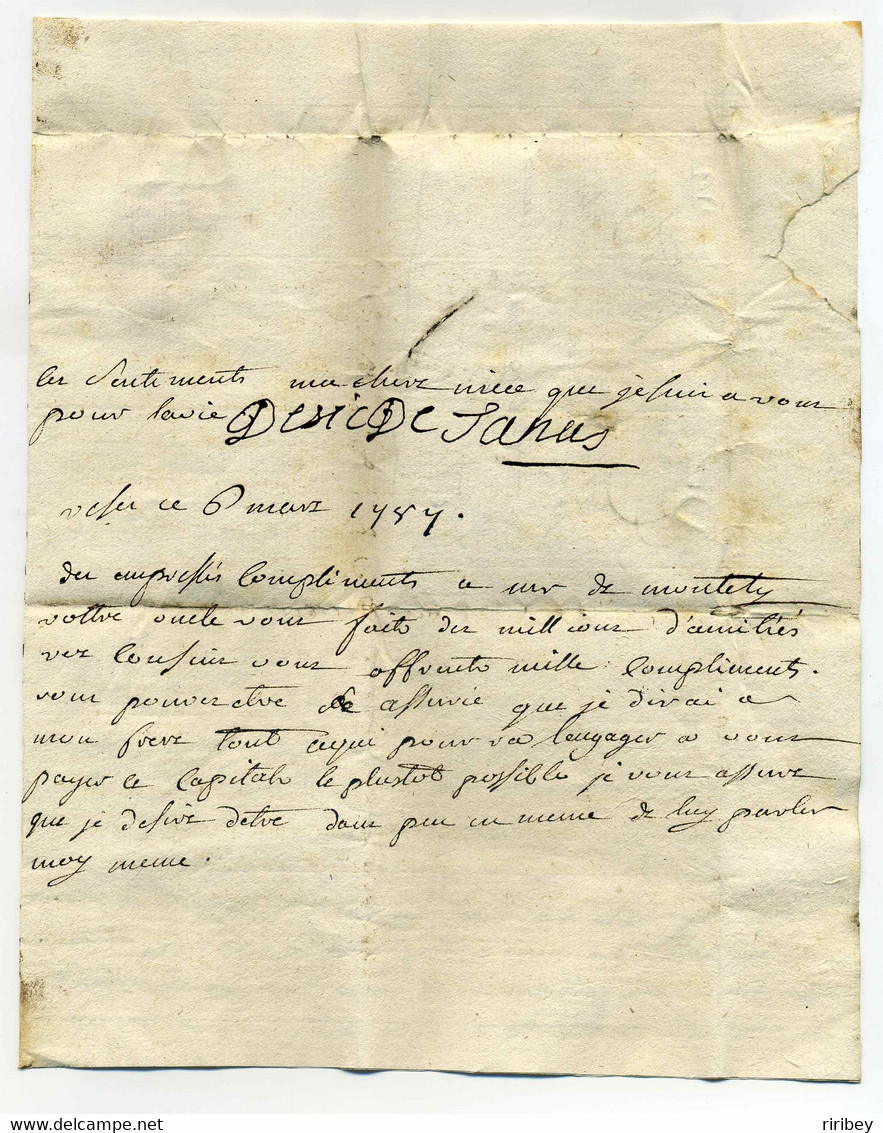 les sentiments ma chere niece que je suis a vous
pour la vie
ce 6 mars 1787.
des empressés compliments a mr de montety
vottre oncle vous fait des millions d'amitiés
vez cousins vous offrents mille compliments.
vous pouvez etre assurée que je dirai a
mon frere tout pour l'engager a vous
payer ce capitale le plustot possible je vous assure
que je desire detre dans peu en meme de luy parler
moy meme.
riribey